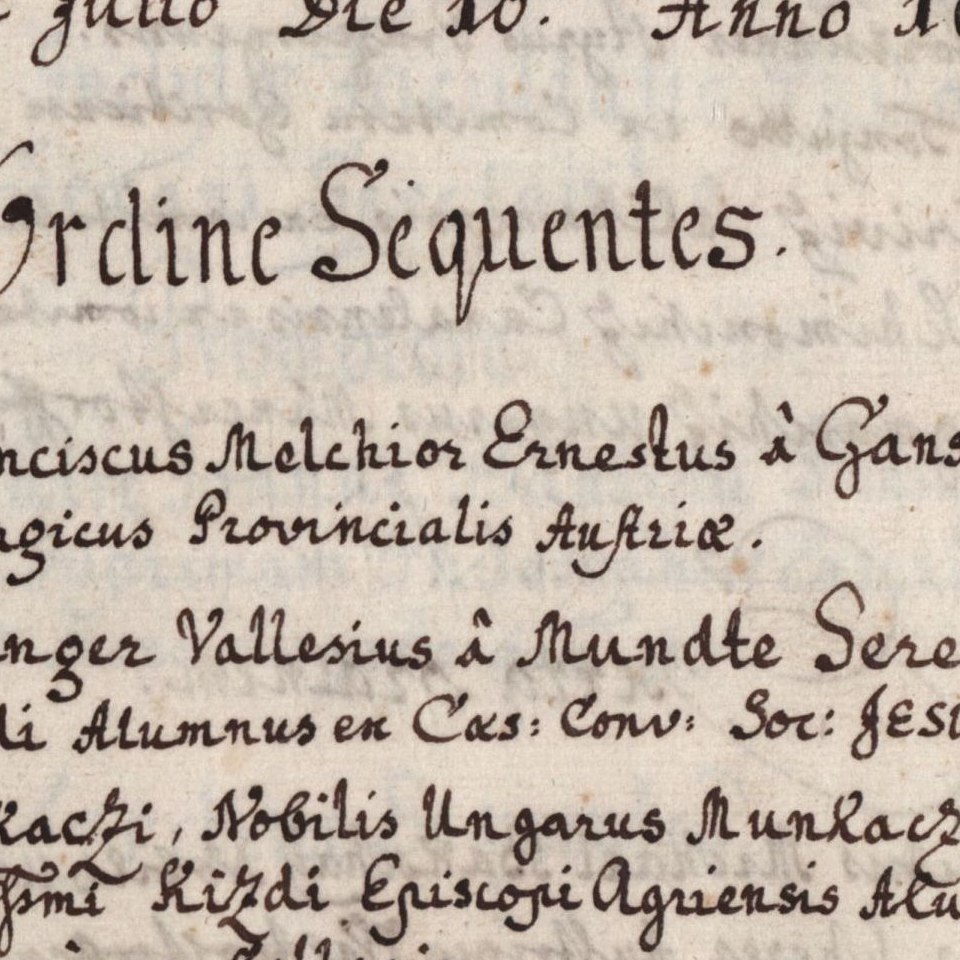 Julio Die 10. Anno 1
Ordine Sequentes.
nciscus Melchior Ernestus â Gans
gicus Provincialis Austriæ.
nger Vallesius â Mundte Sere
di Alumnus ex Cæs: Conv: Soc: JESU
kaczi, Nobilis Ungarus Munkacz
ssmi Kizdi Episcopi Agriensis Alu